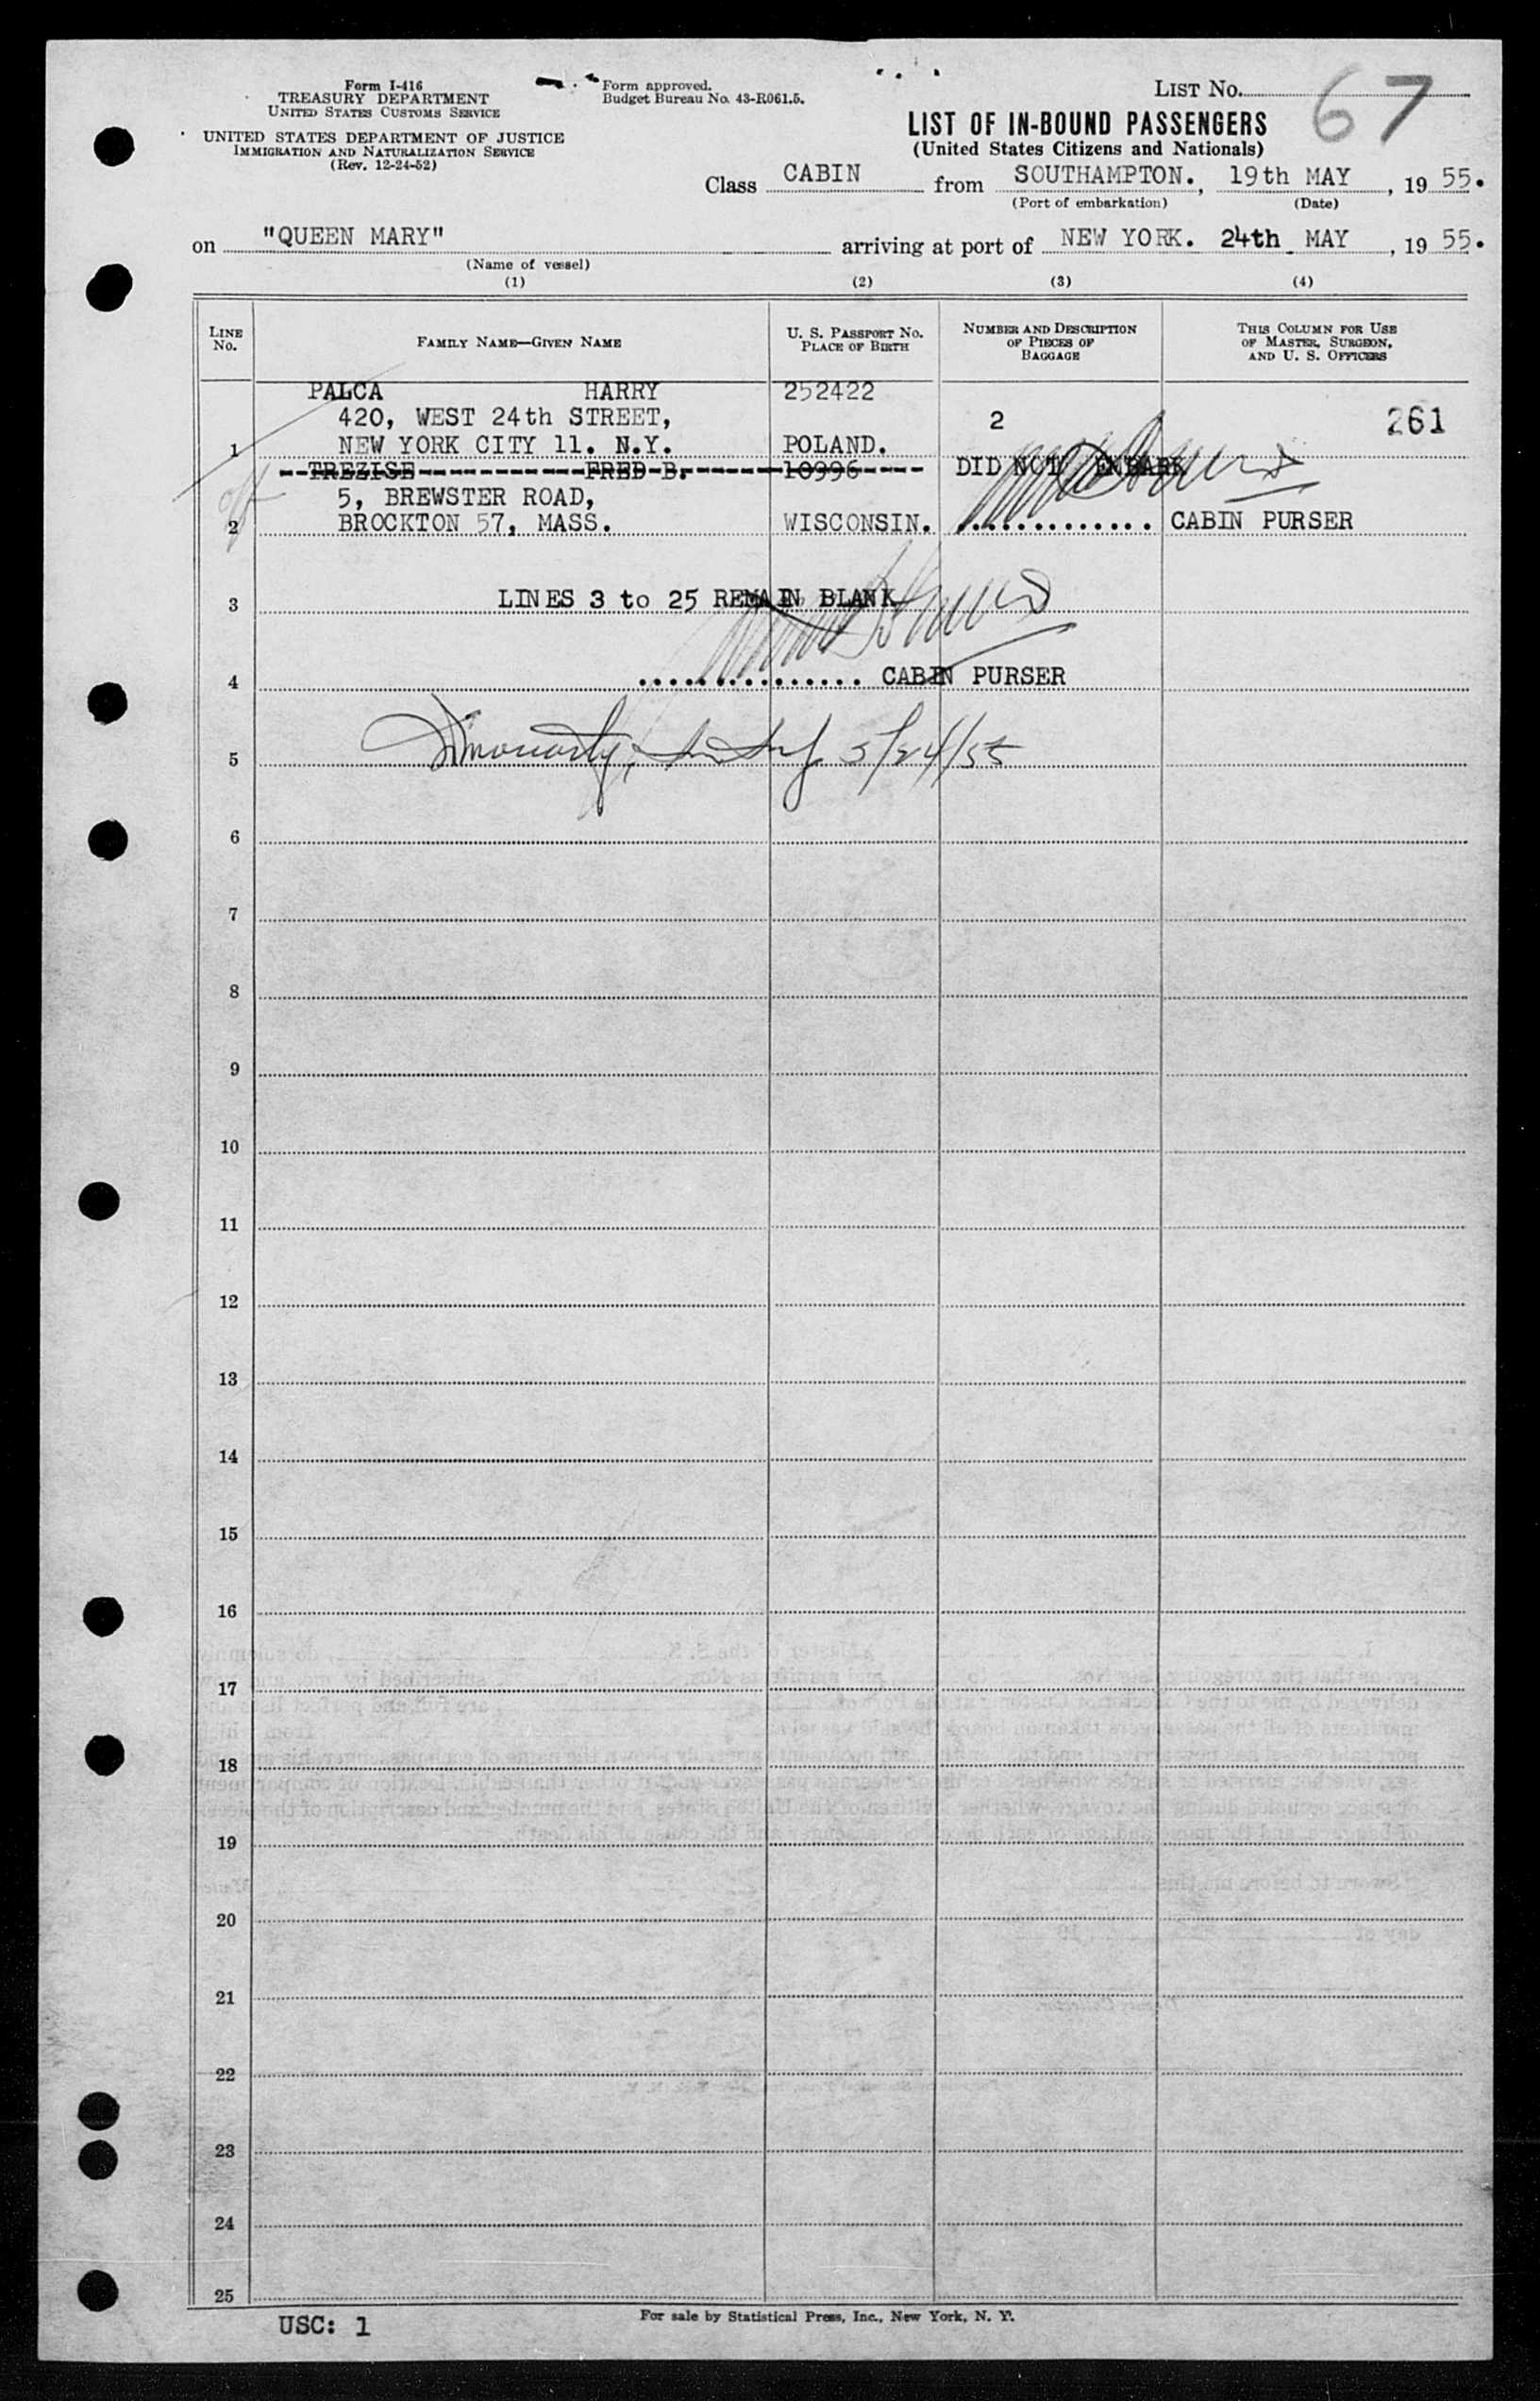 Form I-416
TREASURY DEPARTMENT
UNITED STATES CUSTOMS SERVICE
UNITED STATES DEPARTMENT OF JUSTICE
IMMIGRATION AND NATURALIZATION SERVICE
(Rev. 12-24-52)
Form approved.
Budget Bureau No. 43-R061.5.
LIST No. 67
LIST OF IN-BOUND PASSENGERS
(United States Citizens and Nationals)
Class CABIN from SOUTHAMPTON., 19th MAY, 1955.
(Port of embarkation) (Date)
on "QUEEN MARY" arriving at port of NEW YORK. 24th MAY, 1955.
(Name of vessel)
(1) (2) (3) (4)
LINE No. FAMILY NAME—GIVEN NAME U. S. PASSPORT No. PLACE OF BIRTH NUMBER AND DESCRIPTION OF PIECES OF BAGGAGE THIS COLUMN FOR USE OF MASTER, SURGEON, AND U. S. OFFICERS
PALCA HARRY 252422
420, WEST 24th STREET, 2 261
1 NEW YORK CITY 11. N.Y. POLAND.
--TREZISE-----------FRED B.------10996---- DID NOT EMBARK
5, BREWSTER ROAD,
2 BROCKTON 57, MASS. WISCONSIN. ............. CABIN PURSER
3 LINES 3 to 25 REMAIN BLANK
4 ............... CABIN PURSER
5 5/24/55
6
7
8
9
10
11
12
13
14
15
16
17
18
19
20
21
22
23
24
25
USC: 1
For sale by Statistical Press, Inc., New York, N. Y.